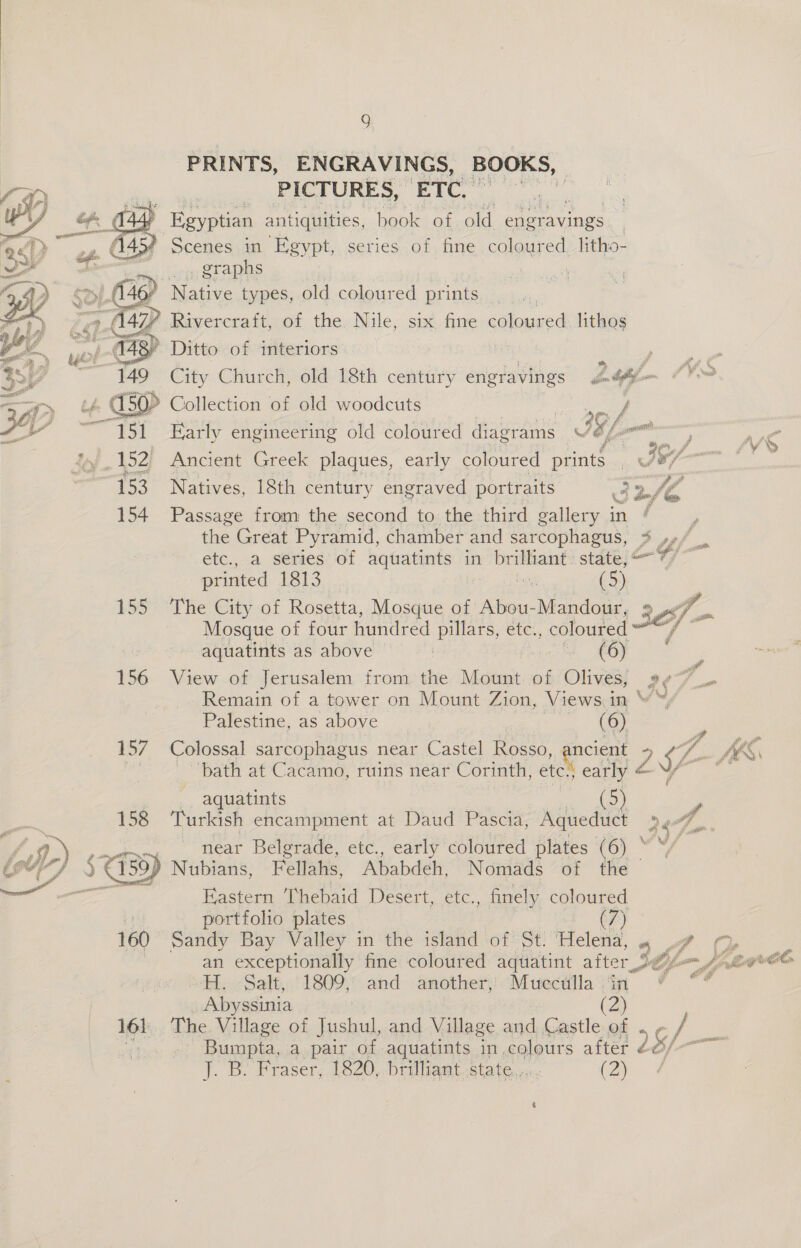 9
PRINTS, ENGRAVINGS, BOOKS,
PICTURES, ETC.
144 Egyptian antiquities, book of old engravings
145 Scenes in Egypt, series of fine coloured litho-
graphs
146 Native types, old coloured prints
147 Rivercraft, of the Nile, six fine coloured lithos
148 Ditto of interiors
149 City Church, old 18th century engravings
150 Collection of old woodcuts
151 Early engineering old coloured diagrams
152 Ancient Greek plaques, early coloured prints
153 Natives, 18th century engraved portraits
154 Passage from the second to the third gallery in
the Great Pyramid, chamber and sarcophagus,
etc., a series of aquatints in brilliant state,
printed 1813 (5)
155 The City of Rosetta, Mosque of Abou-Mandour,
Mosque of four hundred pillars, etc., coloured
aquatints as above (6)
156 View of Jerusalem from the Mount of Olives,
Remain of a tower on Mount Zion, Views in
Palestine, as above (6)
157 Colossal sarcophagus near Castel Rosso, ancient
bath at Cacamo, ruins near Corinth, etc., early
aquatints (5)
158 Turkish encampment at Daud Pascia, Aqueduct
near Belgrade, etc., early coloured plates (6)
159 Nubians, Fellahs, Ababdeh, Nomads of the
Eastern Thebaid Desert, etc., finely coloured
portfolio plates (7)
160 Sandy Bay Valley in the island of St. Helena,
an exceptionally fine coloured aquatint after
H. Salt, 1809, and another, Mucculla in
Abyssinia (2)
161 The Village of Jushul, and Village and Castle of
Bumpta, a pair of aquatints in colours after
J. B. Fraser, 1820, brilliant state (2)